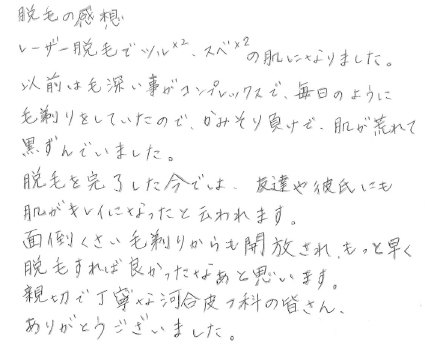 脱毛の感想
レーザー脱毛でツル×2、スベ×2の肌になりました。
以前は毛深い事がコンプレックスで、毎日のように
毛剃りをしていたので、かみそり負けで、肌が荒れて
黒ずんでいました。
脱毛を完了した今では、友達や彼氏にも
肌がキレイになったと云われます。
面倒くさい毛剃りからも開放され、もっと早く
脱毛すれば良かったなあと思います。
親切で丁寧な河合皮フ科の皆さん、
ありがとうございました。